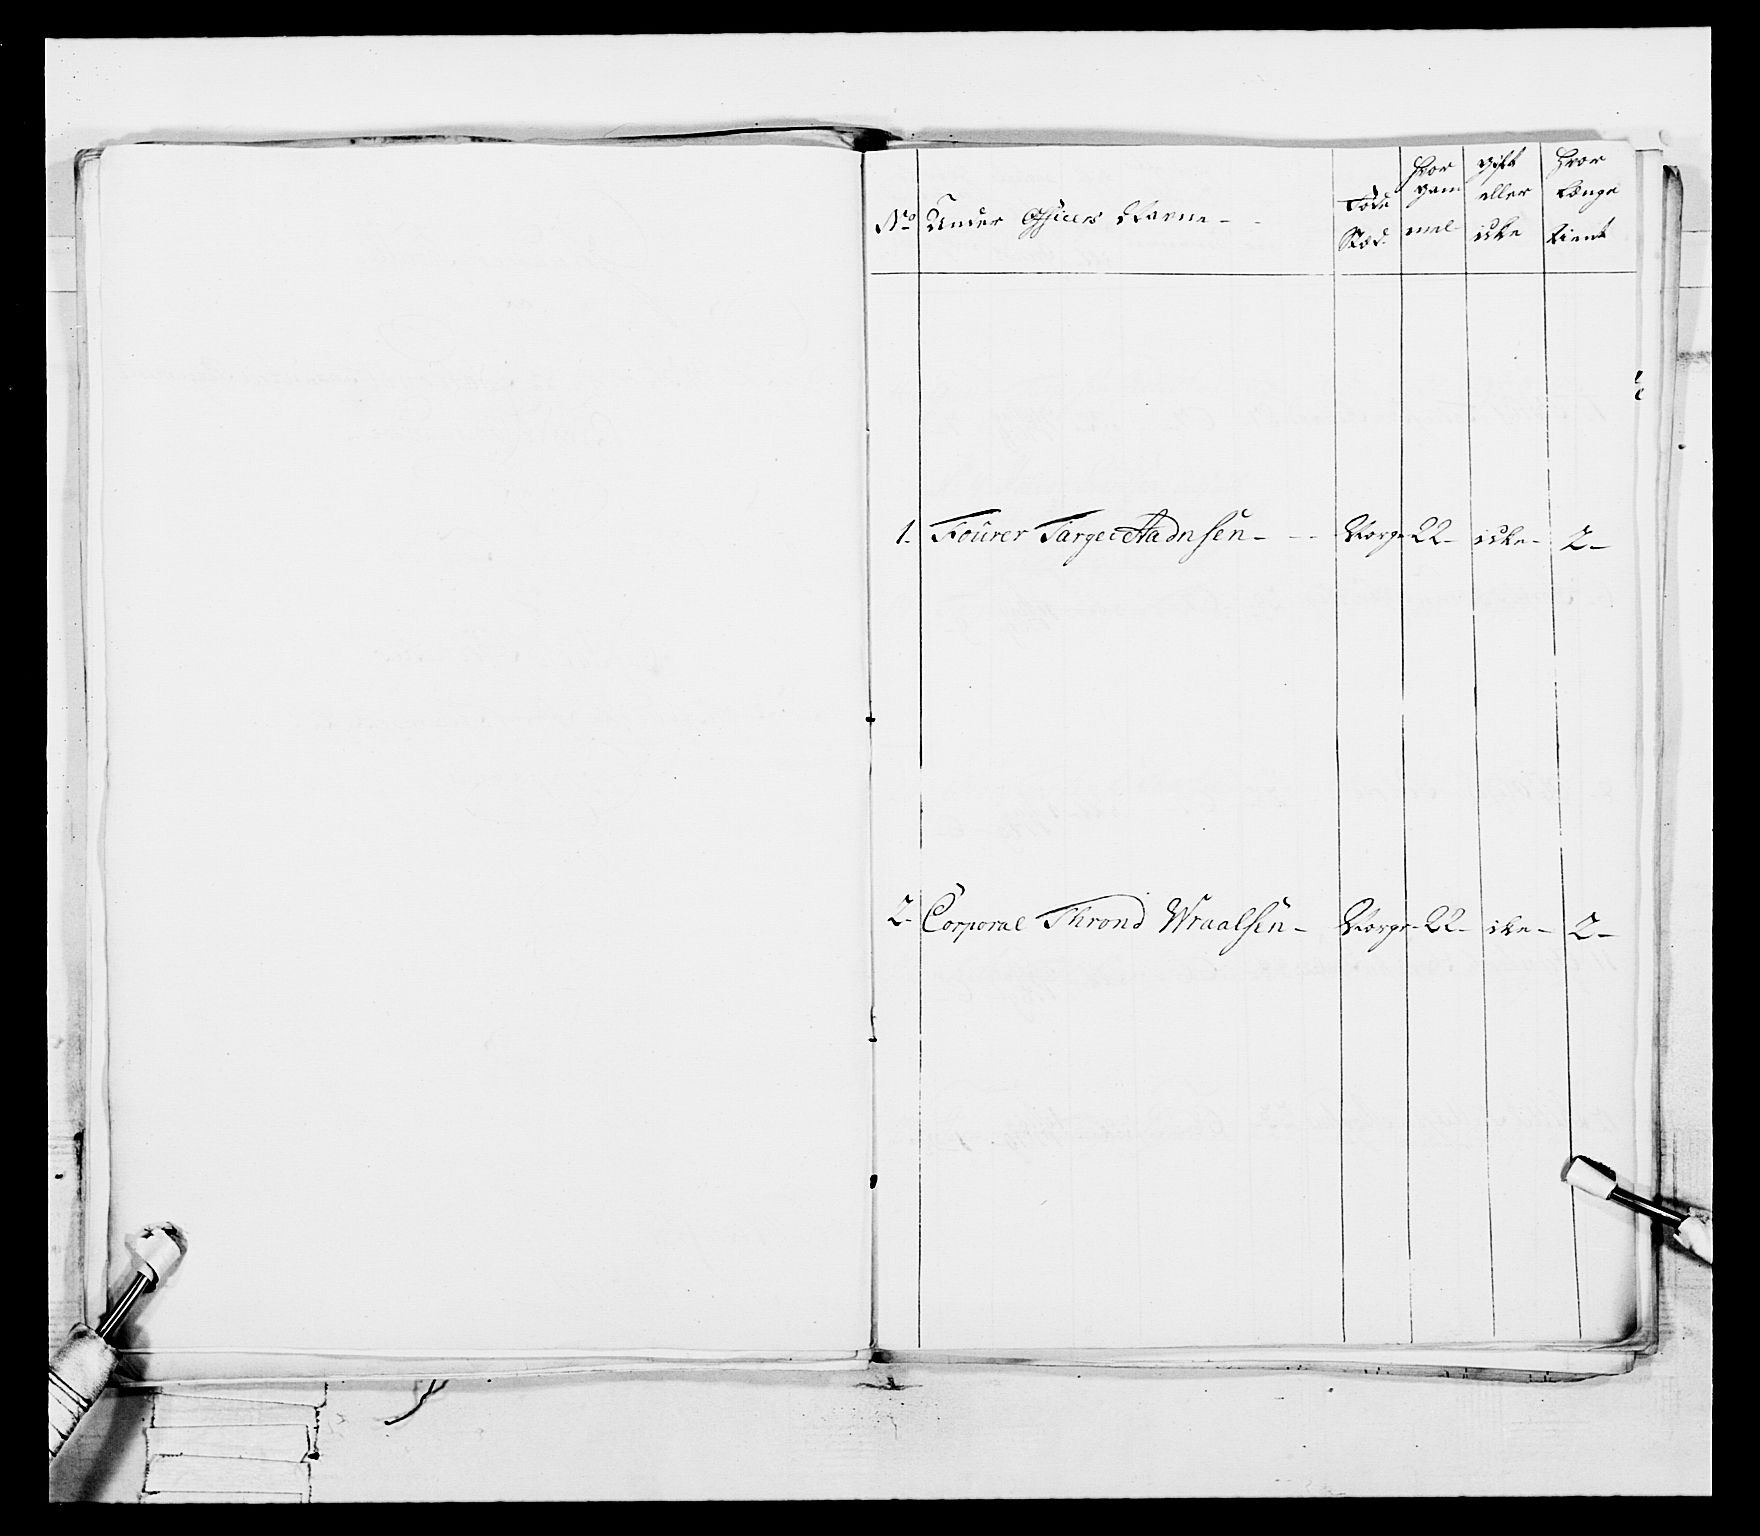 No Under Officers Navne -
Føde Stæd
Hvor gam mel
gift eller icke
Hvor længe tient
1. Fourer Targei Aadnsen - - - Norge 22 - icke - 2 -
2. Corporal Thrond Wraalsen - Norge - 22 - icke - 2 -